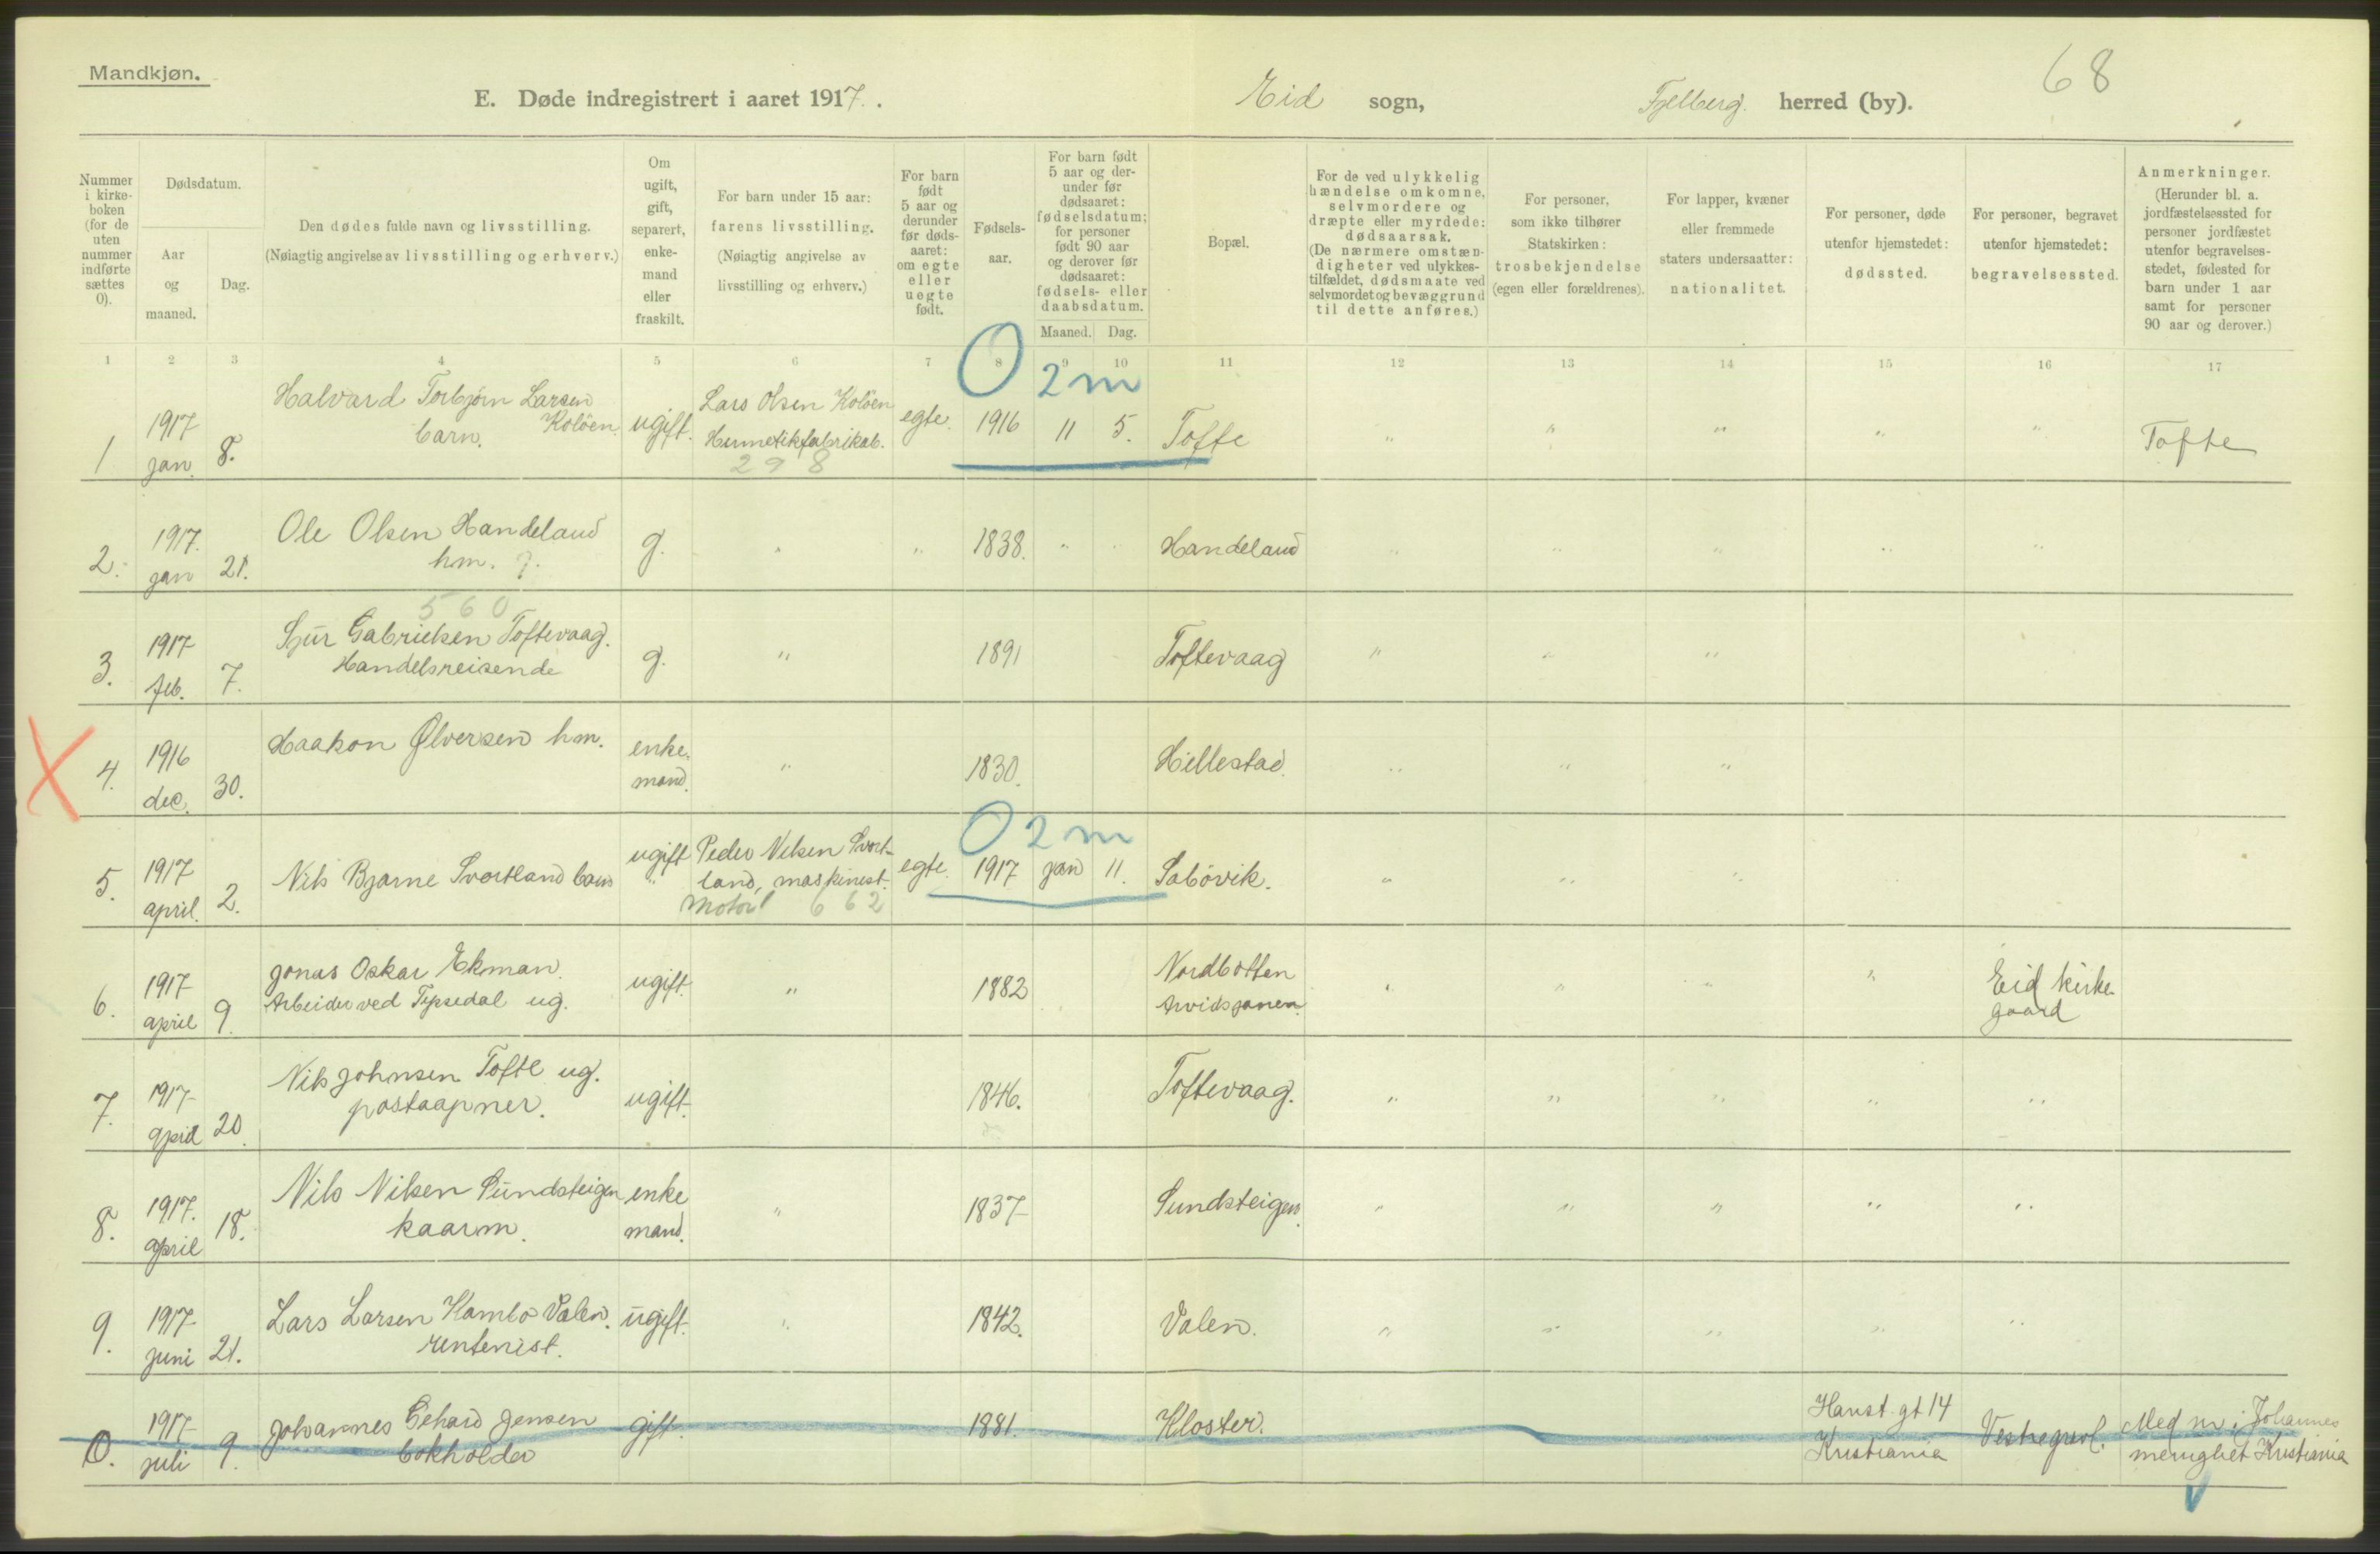 Mandkjøn.
68
E. Døde indregistrert i aaret 1917.
Eid sogn,
Fjelberg. herred (by).
Nummer i kirke-boken (for de uten nummer indførte sættes 0).
Dødsdatum.
Aar og maaned.
Dag.
Den dødes fulde navn og livsstilling.
(Nøiagtig angivelse av livsstilling og erhverv.)
Om ugift, gift, separert, enke-mand eller fraskilt.
For barn under 15 aar:
farens livsstilling.
(Nøiagtig angivelse av livsstilling og erhverv.)
For barn født 5 aar og derunder før døds-aaret: om egte eller uegte født.
Fødsels-aar.
For barn født 5 aar og der-under før dødsaaret: fødselsdatum; for personer født 90 aar og derover før dødsaaret: fødsels- eller daabsdatum.
Maaned. Dag.
Bopæl.
For de ved ulykkelig hændelse omkomne, selvmordere og dræpte eller myrdede: dødsaarsak. (De nærmere omstæn-digheter ved ulykkes-tilfældet, dødsmaate ved selvmordet og bevæggrund til dette anføres.)
For personer, som ikke tilhører Statskirken: trosbekjendelse (egen eller forældrenes).
For lapper, kvæner eller fremmede staters undersaatter: nationalitet.
For personer, døde utenfor hjemstedet: dødssted.
For personer, begravet utenfor hjemstedet: begravelsessted.
Anmerkninger.
(Herunder bl. a. jordfæstelsessted for personer jordfæstet utenfor begravelses-stedet, fødested for barn under 1 aar samt for personer 90 aar og derover.)
1 2 3 4 5 6 7 8 9 10 11 12 13 14 15 16 17
0 2 m
1 1917 jan. 8. Halvard Torbjørn Larsen Kolöen. barn. ugift. Lars Olsen Kolöen Hermetikfabrikab. egte. 1916 11 5. Tofte " " " " " Tofte
298
2. 1917. jan 21. Ole Olsen Handeland hm. g. g. " " 1838. " " Handeland " " " " "
560
3. 1917 feb. 7. Sjur Gabrielsen Toftevaag. Handelsreisende g. " 1891 Toftevaag " " "
X 4. 1916 dec. 30. Haakon Ølversen hm. enke-mand. " 1830. Hillestad. " " "
0 2 m
5. 1917 april. 2. Nils Bjarne Svortland barn ugift " Peder Nilsen Svort-land, maskinist. egte. 1917 jan 11. Sabövik. " " "
Motor 662
6. 1917 april 9. Jonas Oskar Ekman. Arbeider ved Tyssedal ug. ugift. " 1882 Nordbotten Arvidsjanen. " " " " Eid kirke gaard
7. 1917 april 20. Nils Johnsen Tofte ug. postaapner. ugift. 1846. Toftevaag. " " " " "
8. 1917. april 18. Nils Nilsen Sundsteigen kaarm. enke mand. " 1837 Sundsteigen. " " " " "
9. 1917 juni 21. Lars Larsen Kambo Valen. rentenist. ugift. " 1842. Valen. " " " " "
0. 1917 juli 9. Johannes Gehard Jensen bokholder gift. 1881. Kloster. Hanst. gt 14 Kristiania Vestregravl. Med m i Johannes menighet Kristiania